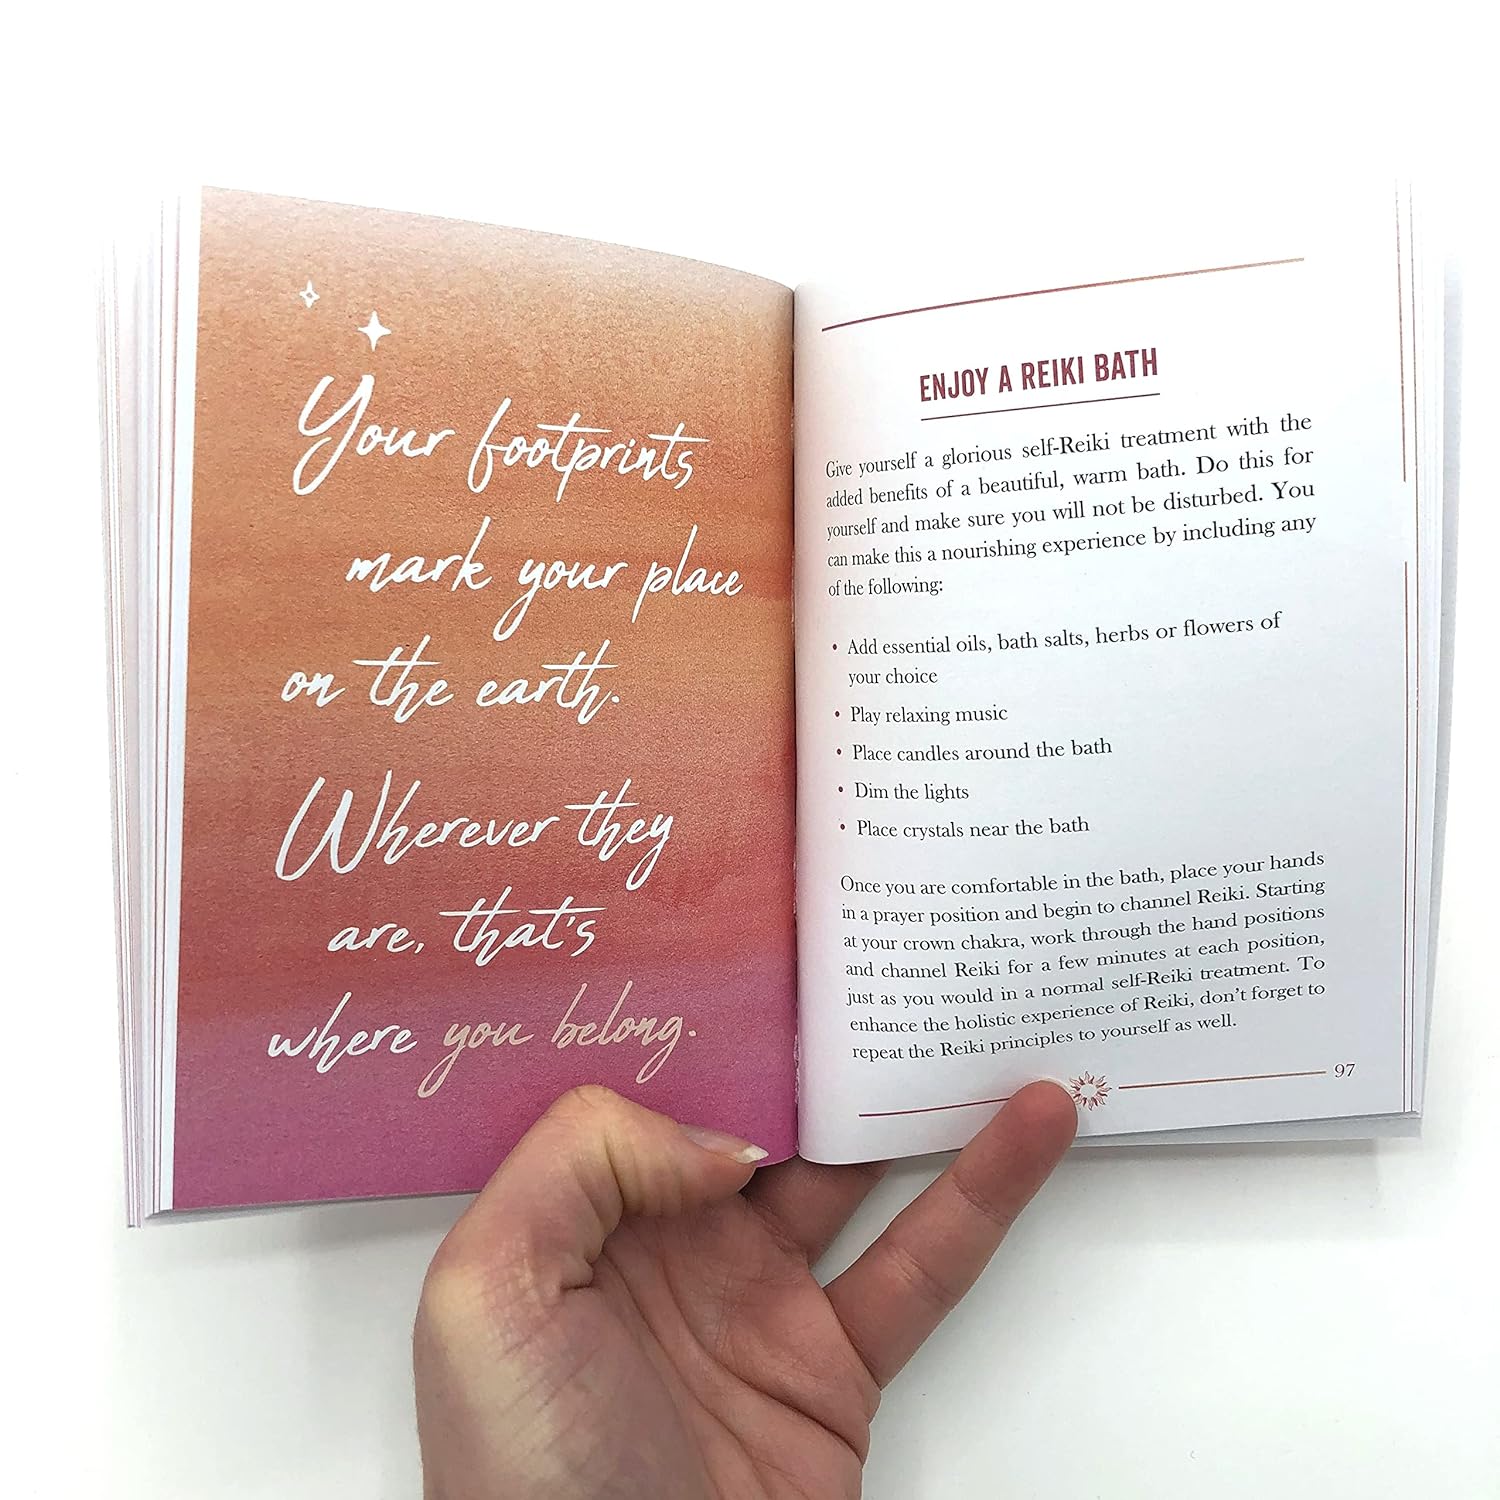 Your footprints
mark your place
on the earth.
Wherever they
are, that's
where you belong.
ENJOY A REIKI BATH
Give yourself a glorious self-Reiki treatment with the
added benefits of a beautiful, warm bath. Do this for
yourself and make sure you will not be disturbed. You
can make this a nourishing experience by including any
of the following:
• Add essential oils, bath salts, herbs or flowers of
your choice
• Play relaxing music
• Place candles around the bath
• Dim the lights
• Place crystals near the bath
Once you are comfortable in the bath, place your hands
in a prayer position and begin to channel Reiki. Starting
at your crown chakra, work through the hand positions
and channel Reiki for a few minutes at each position,
just as you would in a normal self-Reiki treatment. To
enhance the holistic experience of Reiki, don't forget to
repeat the Reiki principles to yourself as well.
97